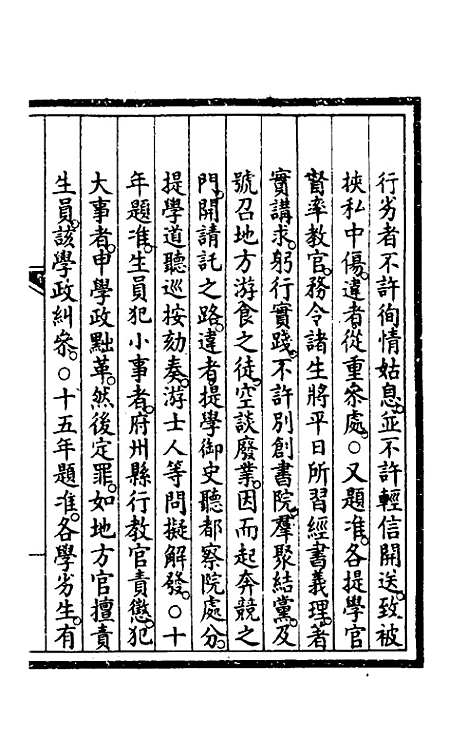 行劣者不許徇情姑息。並不許輕信開送。致被
挾私中傷。違者從重參處。○又題准。各提學官
督率教官。務令諸生將平日所習經書義理。著
實講求。躬行實踐。不許別創書院。羣聚結黨。及
號召地方游食之徒。空談廢業。因而起奔競之
門。開請託之路。違者提學御史聽都察院處分。
提學道聽巡按劾奏。游士人等問擬解發。○十
年題准。生員犯小事者。府州縣行教官責懲。犯
大事者。申學政黜革。然後定罪。如地方官擅責
生員。該學政糾參。○十五年題准。各學劣生。有